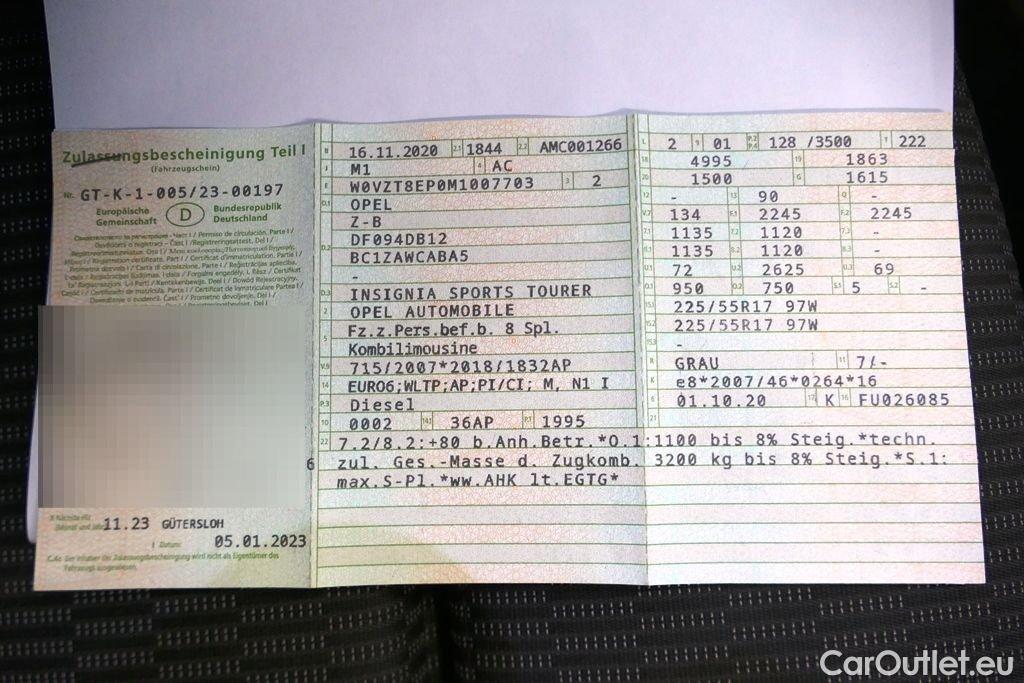 Zulassungsbescheinigung Teil I
(Fahrzeugschein)
Nr. GT-K-1-005/23-00197
Europäische Gemeinschaft D Bundesrepublik Deutschland
X Nächste HU (Monat und Jahr) 11.23 GÜTERSLOH
I Datum: 05.01.2023
C.4c Der Inhaber der Zulassungsbescheinigung wird nicht als Eigentümer des
Fahrzeugs ausgewiesen.
B 16.11.2020 2.1 1844 2.2 AMC001266
J M1 4 AC
E W0VZT8EP0M1007703 3 2
D.1 OPEL
Z-B
D.2 DF094DB12
BC1ZAWCABA5
-
D.3 INSIGNIA SPORTS TOURER
2 OPEL AUTOMOBILE
5 Fz.z.Pers.bef.b. 8 Spl.
Kombilimousine
V.9 715/2007*2018/1832AP
14 EURO6;WLTP;AP;PI/CI; M, N1 I
P.3 Diesel
10 0002 14.1 36AP P.1 1995
L 2 9 01 P.2 P.4 128 /3500 T 222
18 4995 19 1863
20 1500 G 1615
12 - 13 90 Q -
V.7 134 F.1 2245 F.2 2245
7.1 1135 7.2 1120 7.3 -
8.1 1135 8.2 1120 8.3 -
U.1 72 U.2 2625 U.3 69
O.1 950 O.2 750 S.1 5 S.2 -
15.1 225/55R17 97W
15.2 225/55R17 97W
15.3 -
R GRAU 11 7/-
K e8*2007/46*0264*16
6 01.10.20 17 K 16 FU026085
21
22 7.2/8.2:+80 b.Anh.Betr.*O.1:1100 bis 8% Steig.*techn.
6 zul. Ges.-Masse d. Zugkomb. 3200 kg bis 8% Steig.*S.1:
max.S-Pl.*ww.AHK lt.EGTG*
CarOutlet.eu